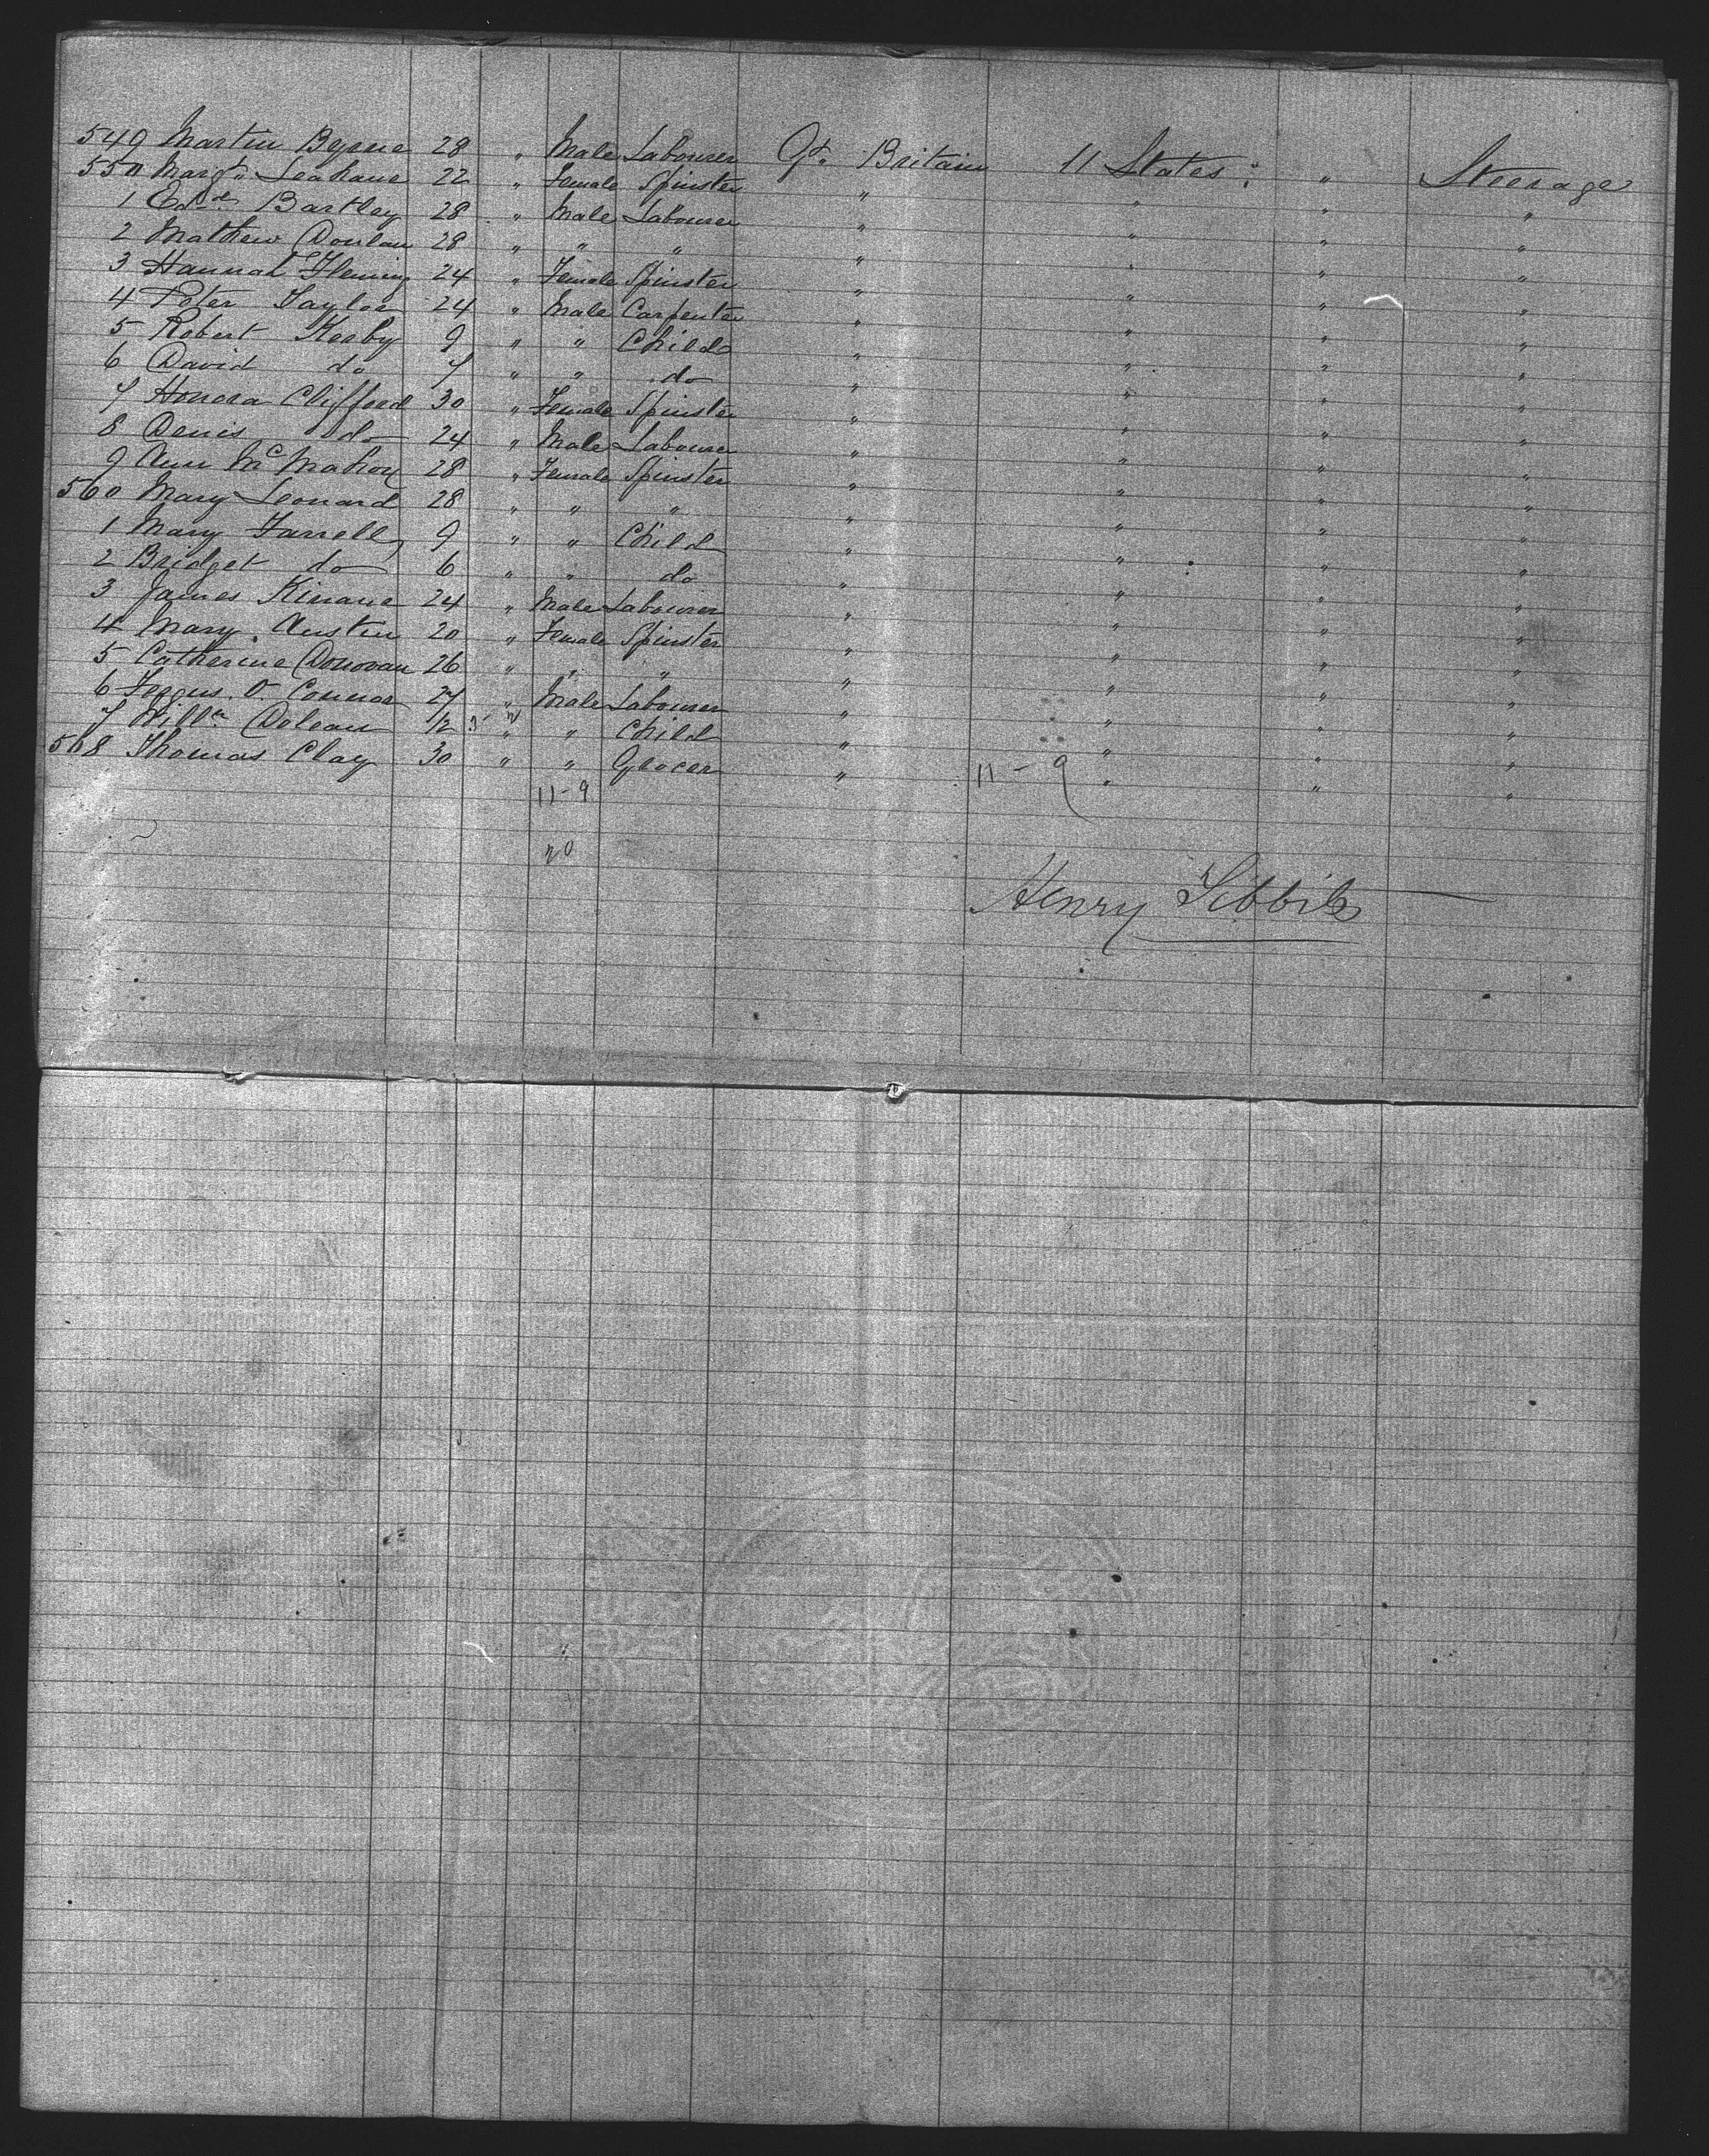 549 Martin Byrne 28 " Male Labourer Gt. Britain U States " Steerage
550 Margt. Leahane 22 " Female Spinster " " " "
1 Edwd. Bartley 28 " Male Labourer " " " "
2 Mathew Donlan 28 " " " " " " "
3 Hannah Fleming 24 " Female Spinster " " " "
4 Peter Taylor 24 " Male Carpenter " " " "
5 Robert Kerby 9 " " Child " " " "
6 David do 7 " " do " " " "
7 Honora Clifford 30 " Female Spinster " " " "
8 Denis do 24 " Male Labourer " " " "
9 Ann McMahon 28 " Female Spinster " " " "
560 Mary Leonard 28 " " " " " " "
1 Mary Farrell 9 " " Child " " " "
2 Bridget do 6 " " do " " " "
3 James Kinane 24 " Male Labourer " " " "
4 Mary Austin 20 " Female Spinster " " " "
5 Catherine Donovan 26 " " " " " " "
6 Fergus O Connor 27 " Male Labourer " " " "
7 Willm 1/2 " " Child " " " "
568 Thomas Clay 30 " " Grocer " " " "
11-9 11-9
20
Henry